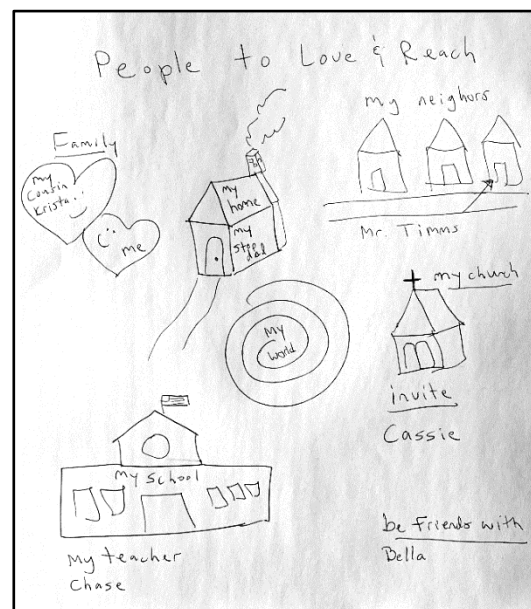 People to Love & Reach
Family
my
cousin
Krista
me
my
home
my
step
dad
my neighors
Mr. Timms
my
world
my church
invite
Cassie
my school
My teacher
Chase
be friends with
Bella